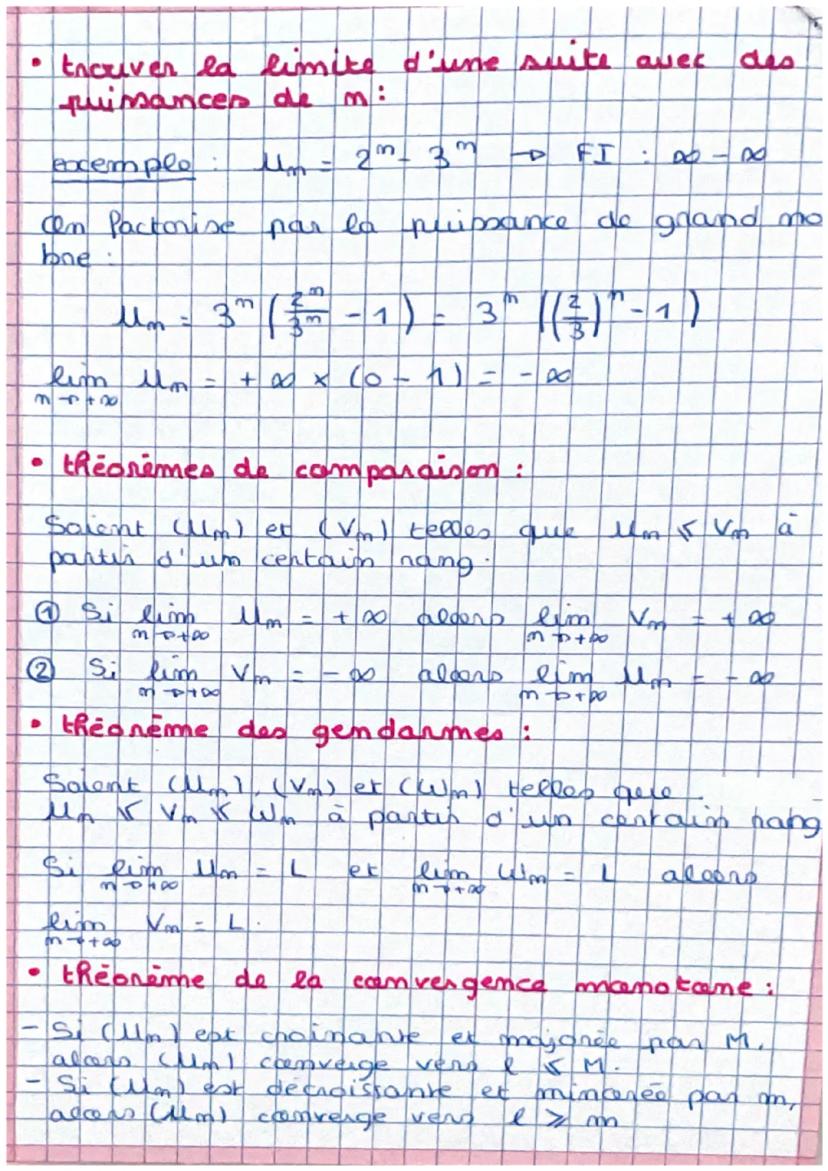 • trouver la limite d'une suite avec des
puissances de n :
exemple : Un = 2^n - 3^n → FI : ∞ - ∞
On factorise par la puissance de grand no
bre :
Un = 3^n (2^n/3^n - 1) = 3^n ((2/3)^n - 1)
lim n→+∞ Un = +∞ × (0 - 1) = -∞
• théorèmes de comparaison :
Soient (Un) et (Vn) telles que Un ≤ Vn à
partir d'un certain rang.
① Si lim n→+∞ Un = +∞ alors lim n→+∞ Vn = +∞
② Si lim n→+∞ Vn = -∞ alors lim n→+∞ Un = -∞
• théorème des gendarmes :
Soient (Un), (Vn) et (Wn) telles que
Un ≤ Vn ≤ Wn à partir d'un certain rang
Si lim n→+∞ Un = L et lim n→+∞ Wn = L alors
lim n→+∞ Vn = L.
• théorème de la convergence monotone :
- Si (Un) est croissante et majorée par M,
alors (Un) converge vers l ≤ M.
- Si (Un) est décroissante et minorée par m,
alors (Un) converge vers l ≥ m